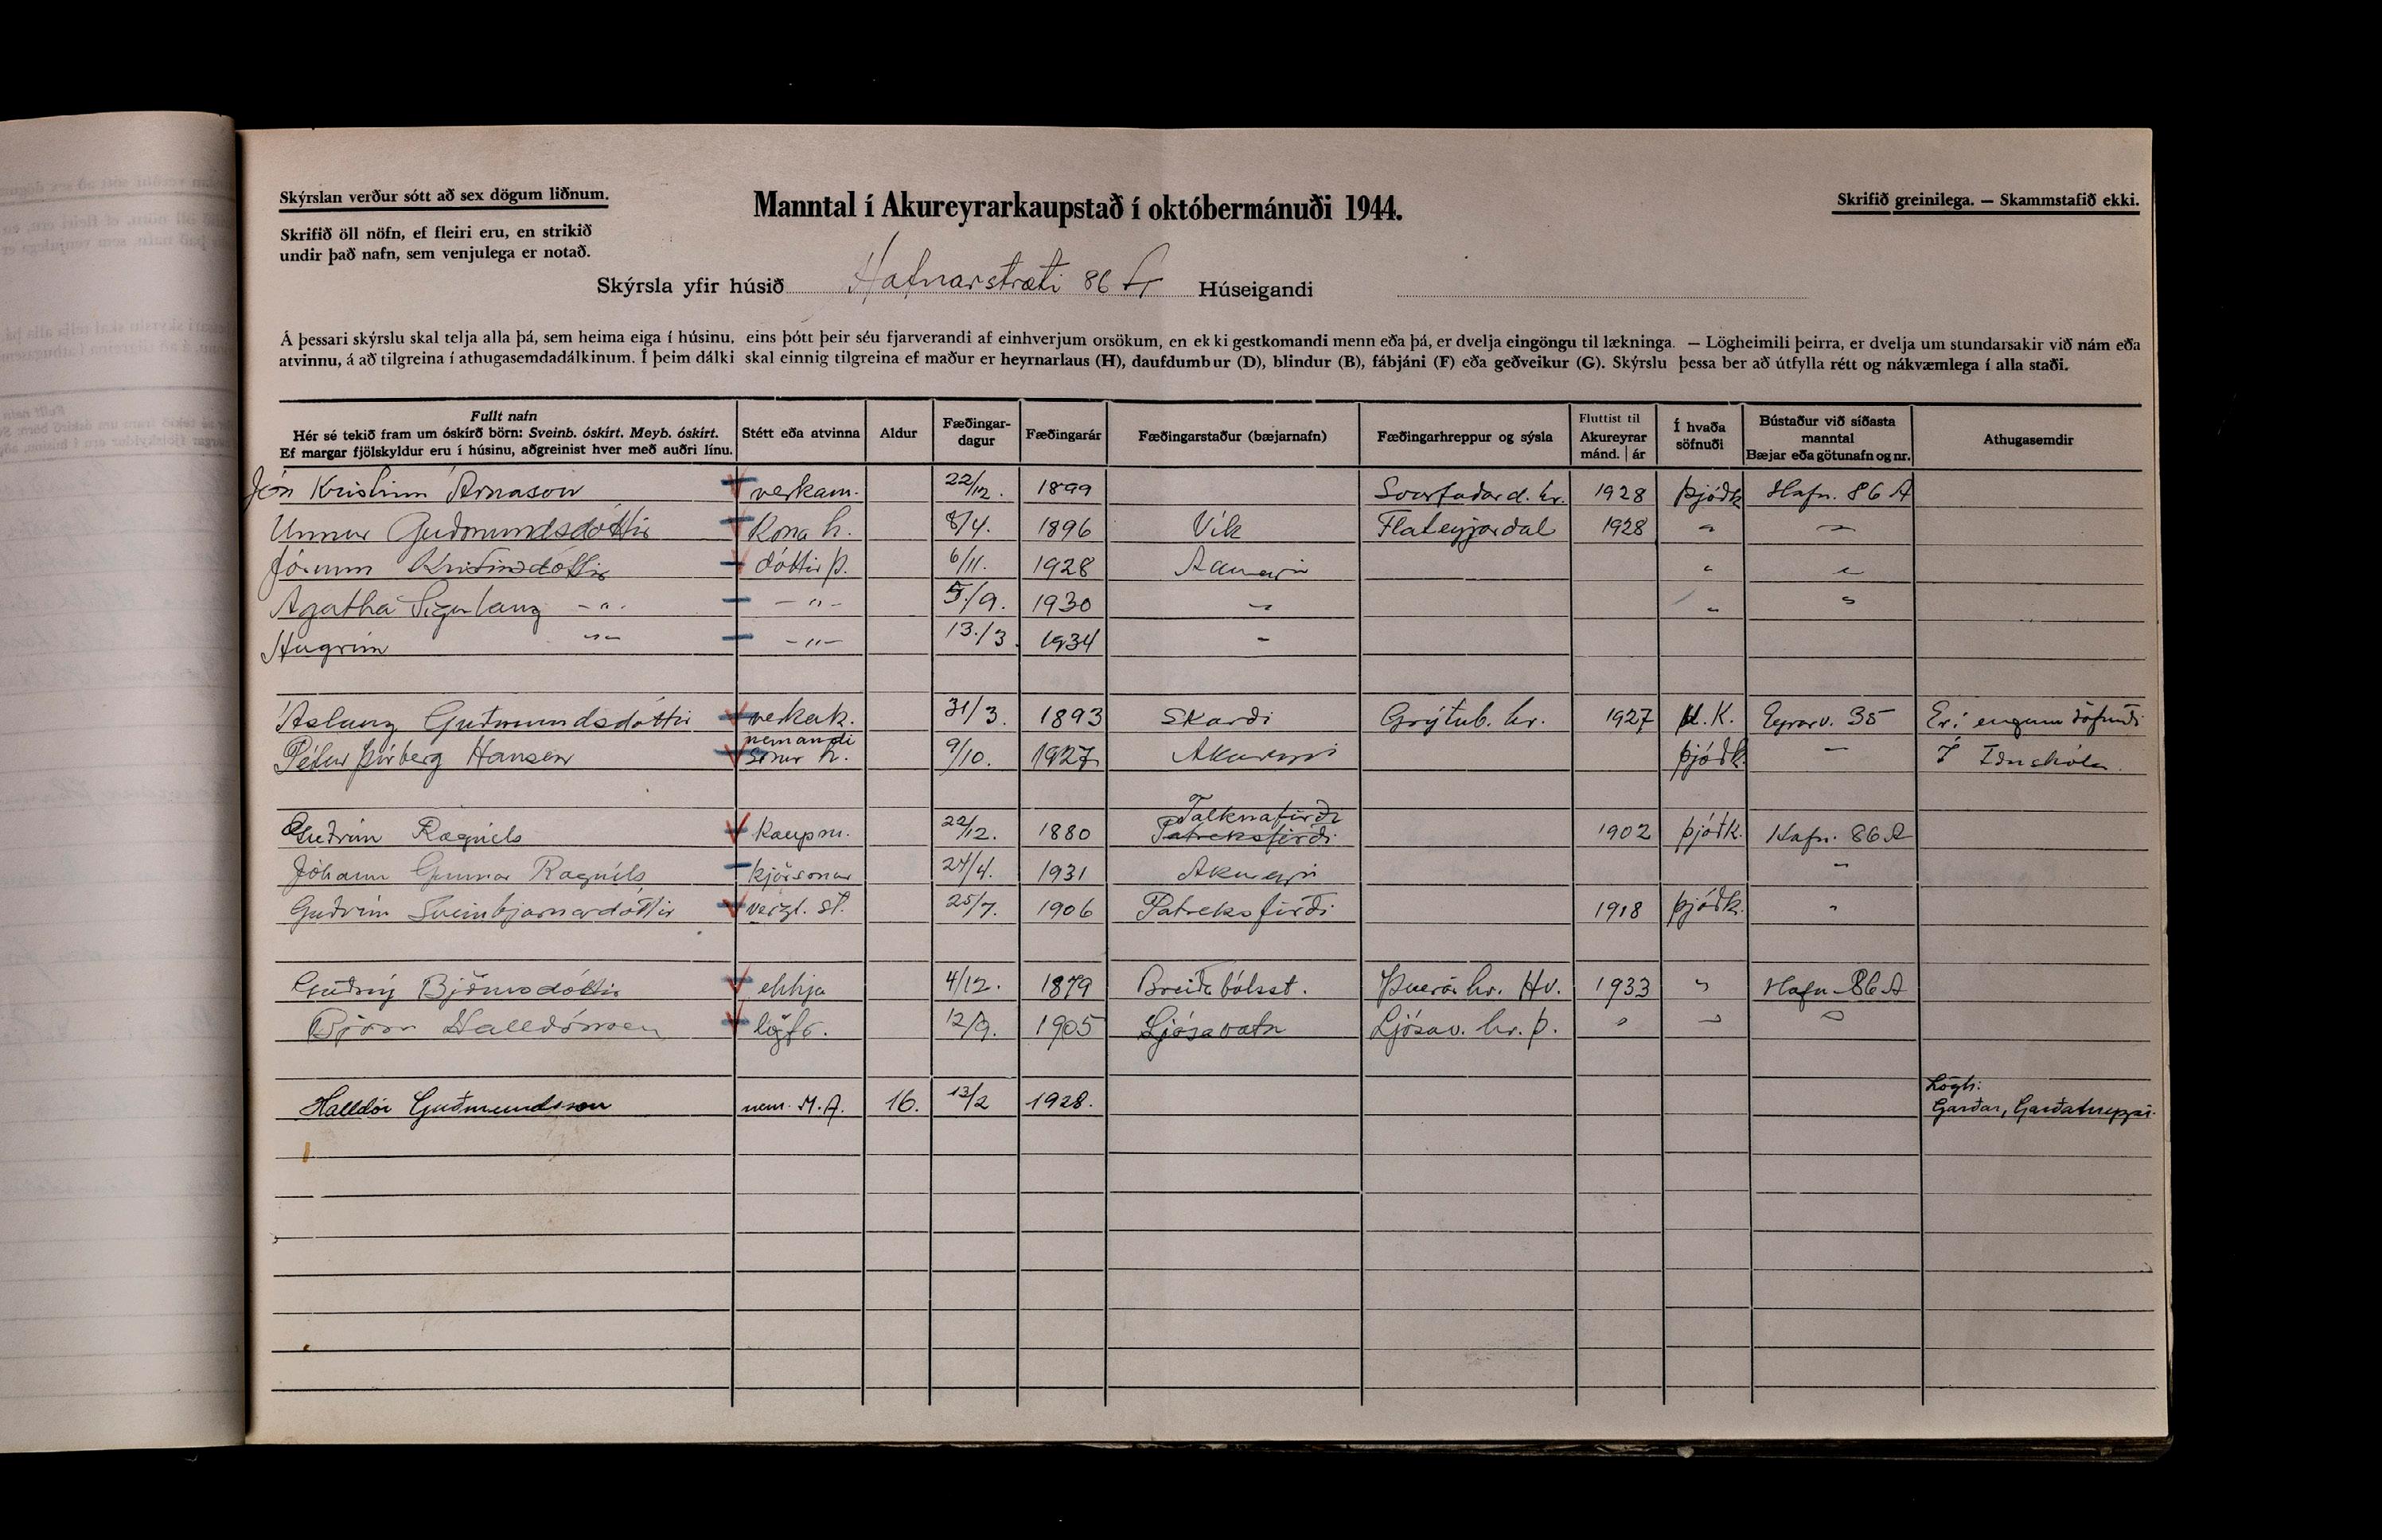 Skýrslan verður sótt að sex dögum liðnum.
Manntal í Akureyrarkaupstað í októbermánuði 1944.
Skrifið greinilega. — Skammstafið ekki.
Skrifið öll nöfn, ef fleiri eru, en strikið
undir það nafn, sem venjulega er notað.
Skýrsla yfir húsið Hafnarstræti 86 A Húseigandi
Á þessari skýrslu skal telja alla þá, sem heima eiga í húsinu, eins þótt þeir séu fjarverandi af einhverjum orsökum, en ekki gestkomandi menn eða þá, er dvelja eingöngu til lækninga. — Lögheimili þeirra, er dvelja um stundarsakir við nám eða
atvinnu, á að tilgreina í athugasemdadálkinum. Í þeim dálki skal einnig tilgreina ef maður er heyrnarlaus (H), daufdumbur (D), blindur (B), fábjáni (F) eða geðveikur (G). Skýrslu þessa ber að útfylla rétt og nákvæmlega í alla staði.
Fullt nafn
Hér sé tekið fram um óskírð börn: Sveinb. óskírt. Meyb. óskírt.
Ef margar fjölskyldur eru í húsinu, aðgreinist hver með auðri línu.
Stétt eða atvinna
Aldur
Fæðingar-
dagur
Fæðingarár
Fæðingarstaður (bæjarnafn)
Fæðingarhreppur og sýsla
Fluttist til
Akureyrar
mánd. | ár
Í hvaða
söfnuði
Bústaður við síðasta
manntal
Bæjar eða götunafn og nr.
Athugasemdir
Jón Kristinn Árnason verkam. 22/12. 1899 Svarfaðard. hr. 1928 þjóðk Hafn. 86 A
Unnur Guðmundsdóttir Kona h. 8/4. 1896 Vík Flateyjardal 1928 " "
Jórunn Kristinsdóttir dóttir þ. 6/11. 1928 Akureyri " "
Agatha Sigurlaug -"- -"- 5/9. 1930 " " "
Hugrún -"- -"- 13./3. 1934 "
Áslaug Guðmundsdóttir verkak. 31/3. 1893 Skarði Grýtub. hr. 1927 U.K. Eyrarv. 35 Er í engum söfnuði
Pétur Þórberg Hansen nemandi
sonur h. 9/10. 1927 Akureyri þjóðk. " Í Iðnskóla.
Guðrún Ragúels kaupm. 22/12. 1880 Tálknafirði
Patreksfirði 1902 þjóðk. Hafn. 86 A
Jóhann Gunnar Ragúels kjörsonur 24/4. 1931 Akureyri "
Guðrún Sveinbjarnardóttir verzl. st. 25/7. 1906 Patreksfirði 1918 þjóðk. "
Guðný Björnsdóttir ekkja 4/12. 1879 Breiðabólsst. Þverár hr. Hv. 1933 " Hafn. 86 A
Björn Halldórsson lögfr. 12/9. 1905 Ljósavatn Ljósav. hr. Þ. " " "
Halldór Guðmundsson nem. M.A. 16. 13/2 1928. Lögh:
Garðar, Garðahreppi.